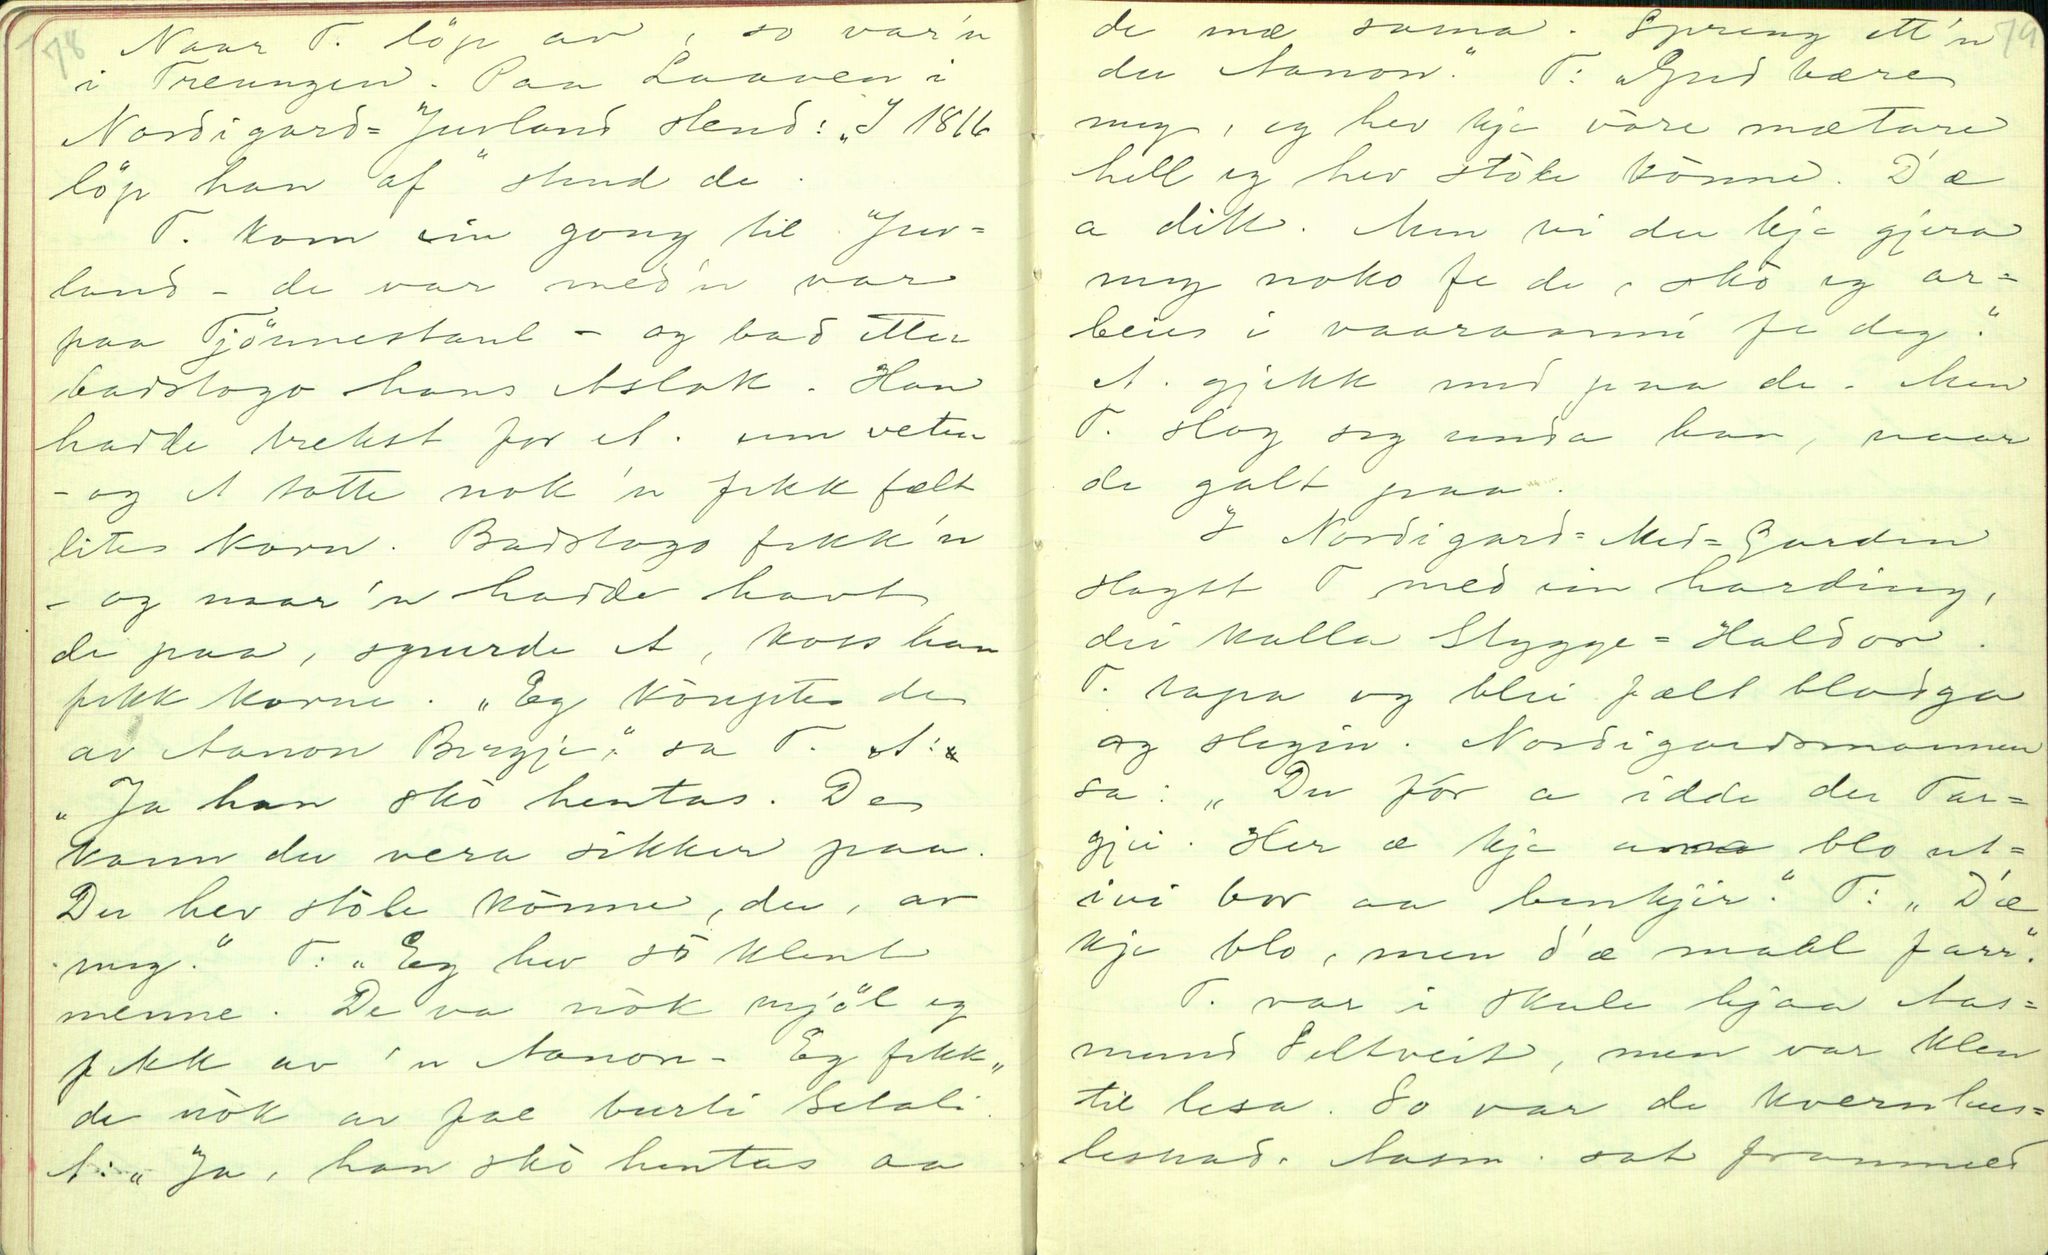 78
Naar T. löp av, so var'n
i Treungen. Paa Laaven i
Nordigard-Juvland stend: „I 1816
löp han af" stend de.
T. kom ein gong til Juv-
land - de var med'n var
paa Tjönnestaul - og bad etter
badstogo hans Aslak. Han
hadde trekst for A. um veten
- og A totte nok 'n fekk fælt
lite korn. Badstogo fekk'n
- og naar'n hadde havt
de paa, spurde A, koss han
fekk korne. „Eg köupte de
av Aanon Bergje," sa T. A:
„Ja han skò hentas. De
kann du vera sikker paa.
Du hev stòle könne, du, av
meg." T: „Eg hev sò klent
menne. De va nòk mjöl eg
fekk av 'n Aanon - Eg fekk
de nòk av fae burti Setali.
A: „Ja, han skò hentas aa
79
de mæ sama. Spreng ett'n
du Aanon." T: „Gud bære
meg, eg hev kje vòre mætare
hell eg hev stòle könne. D'æ
a ditt. Men vi du kje gjera
meg noko fe de, skò eg ar-
beie i vaaraanni fe deg."
A. gjekk med paa de. Men
T. slog seg unda han, naar
de galt paa.
I Nordigard-Med-Garden
slogst T med ein harding,
dei kalla Stygge-Haldor.
T. tapa og blei fælt blodga
og slegin. Nordigardsmannen
sa: „Du fór a idde du Tar-
gjei. Her æ kje a blo ut-
ivi bor aa benkjir." T: „D'æ
kje blo, men d'æ mabl farr".
T. var i skule hjaa Aas-
mund Feltveit, men var klen
til lesa. So var de kvernhus-
leskad. Aasm. sat frammed